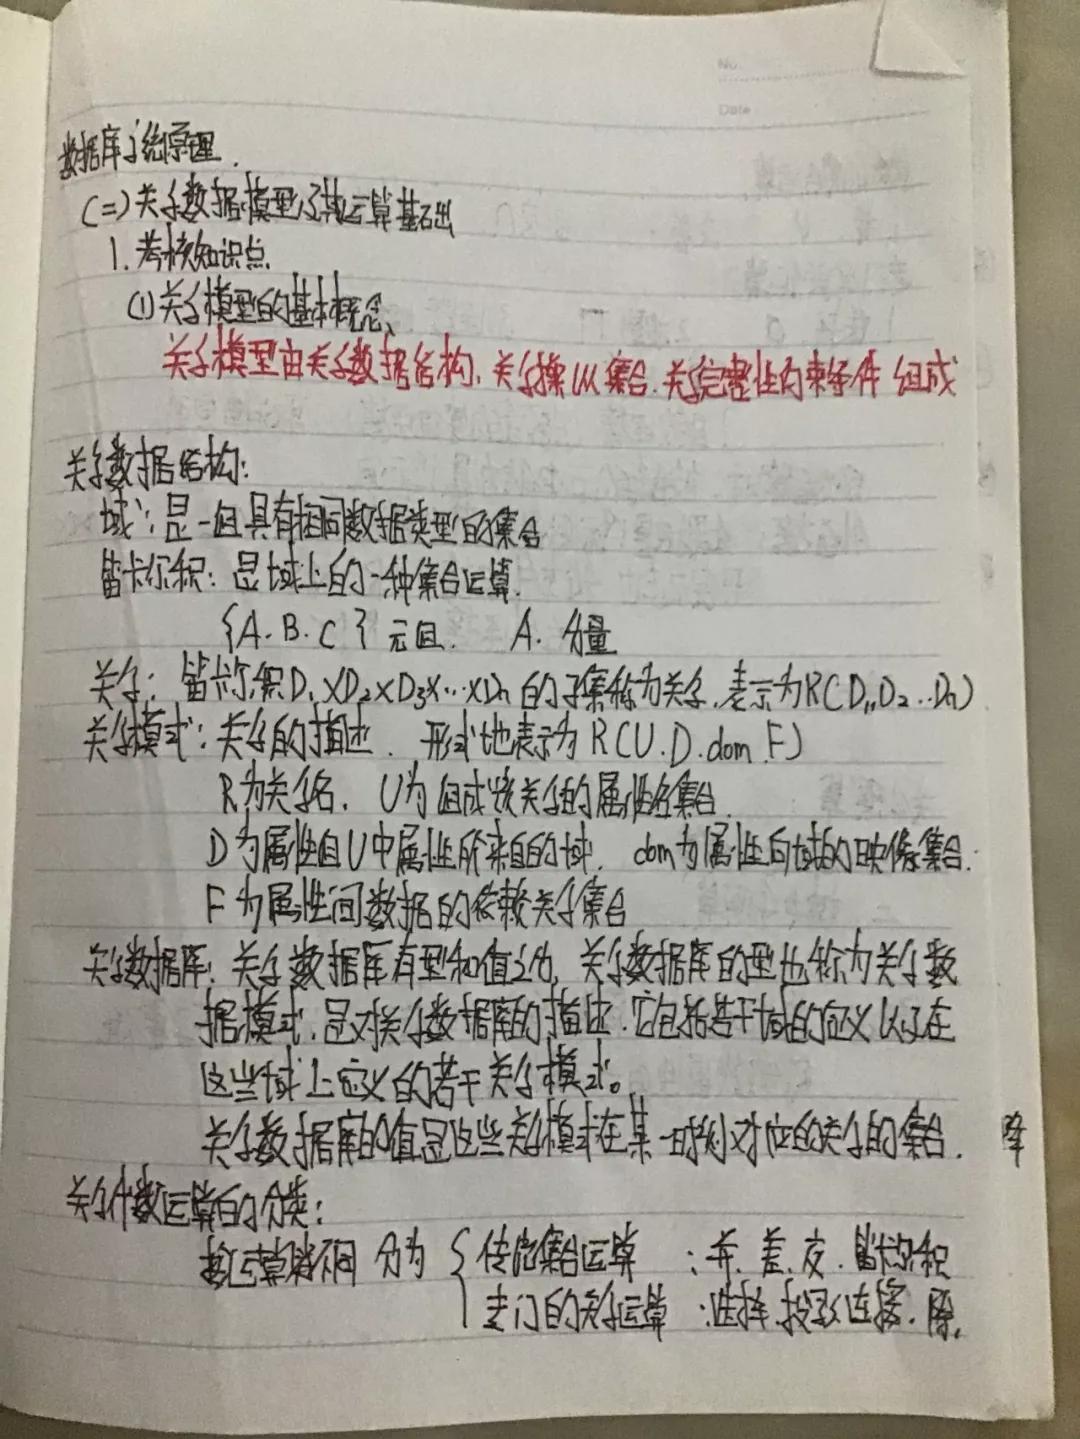 No.
Date
数据库系统原理.
(二)关系数据模型及其运算基础
1.考核知识点
(1)关系模型的基本概念、
关系模型由关系数据结构、关系操以集合、关系完整性约束条件 组成
关系数据结构:
域: 是一组具有相同数据类型的集合
笛卡尔积: 是域上的一种集合运算.
{A.B.C} 元组. A. 分量
关系: 笛卡尔积D₁×D₂×D₃×…×Dn的子集称为关系.表示为R(D₁,D₂…Dn)
关系模式: 关系的描述. 形式地表示为R(U.D.dom.F)
R为关系名. U为组成该关系的属性名集合
D为属性组U中属性所来自的域. dom为属性向域的映像集合.
F为属性间数据的依赖关系集合
关系数据库: 关系数据库有型和值之分, 关系数据库的型也称为关系数
据模式.是对关系数据库的描述.它包括若干域的定义以及在
这些域上定义的若干关系模式。
关系数据库的值是这些关系模式在某一时刻对应的关系的集合.
降
关系代数运算的分类:
按运算符不同 分为 { 传统集合运算 : 并.差.交.笛卡尔积
专门的关系运算 :选择.投影.连接.除.